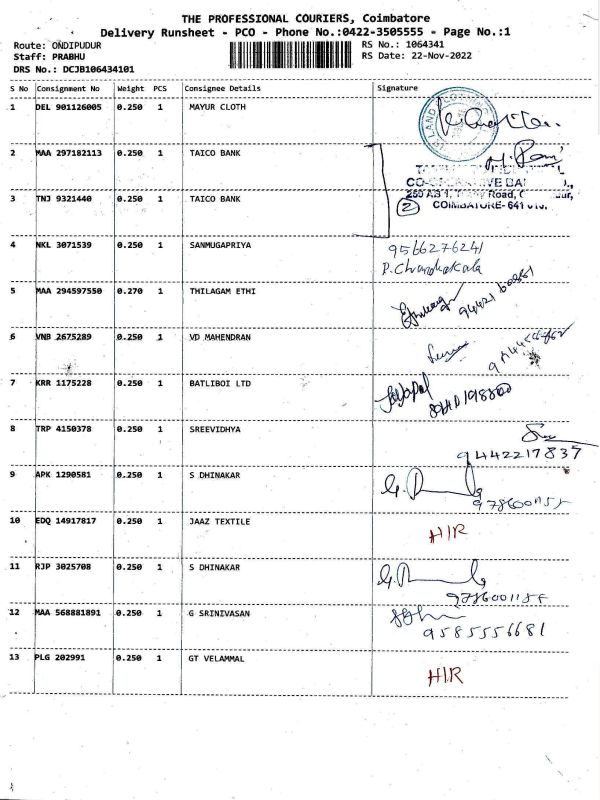 THE PROFESSIONAL COURIERS, Coimbatore
Delivery Runsheet - PCO - Phone No.:0422-3505555 - Page No.:1
Route: ONDIPUDUR RS No.: 1064341
Staff: PRABHU RS Date: 22-Nov-2022
DRS No.: DCJB106434101
S No Consignment No Weight PCS Consignee Details Signature
1 DEL 901126005 0.250 1 MAYUR CLOTH
2 MAA 297182113 0.250 1 TAICO BANK
CO-OPERATIVE BANK
3 TNJ 9321440 0.250 1 TAICO BANK
2 COIMBATORE- 641
4 NKL 3071539 0.250 1 SANMUGAPRIYA 9566276241
P.Chandrakala
5 MAA 294597550 0.270 1 THILAGAM ETHI
6 VNB 2675289 0.250 1 VD MAHENDRAN
7 KRR 1175228 0.250 1 BATLIBOI LTD
8 TRP 4150378 0.250 1 SREEVIDHYA
9442217837
9 APK 1290581 0.250 1 S DHINAKAR
10 EDQ 14917817 0.250 1 JAAZ TEXTILE H/R
11 RJP 3025708 0.250 1 S DHINAKAR
12 MAA 568881891 0.250 1 G SRINIVASAN
9585556681
13 PLG 202991 0.250 1 GT VELAMMAL H/R